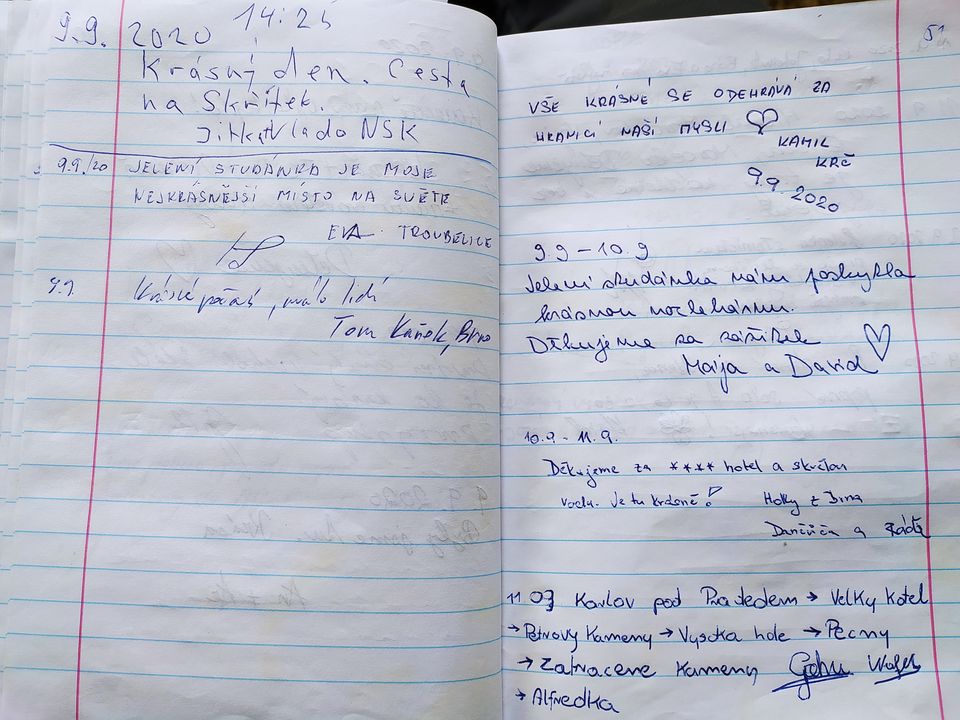 9.9. 2020 14:25
Krásný den. Cesta
na Skřítek.
Jitka+Vlado NSK
9.9./20 JELENÍ STUDÁNKA JE MOJE
NEJKRÁSNĚJŠÍ MÍSTO NA SVĚTE
EVA TROUBELICE
9.9. Krásné počasí, málo lidí
Tom Kaňok, Brno
51
VŠE KRÁSNÉ SE ODEHRÁVÁ ZA
HRANICÍ NAŠÍ MYSLI
KAMIL
KRČ
9.9. 2020
9.9 – 10.9
Jelení studánka nám poskytla
krásnou noclehárnu.
Děkujeme za zážitek
Maija a David
10.9. - 11.9.
Děkujeme za **** hotel a skvělou
vodu. Je tu krásně!
Holky z Brna
Dančiča a
11.09 Karlov pod Pradedem → Velky Kotel
→ Petrovy Kameny → Vysoka hole → Pecny
→ Ztracene Kameny
→ Alfredka